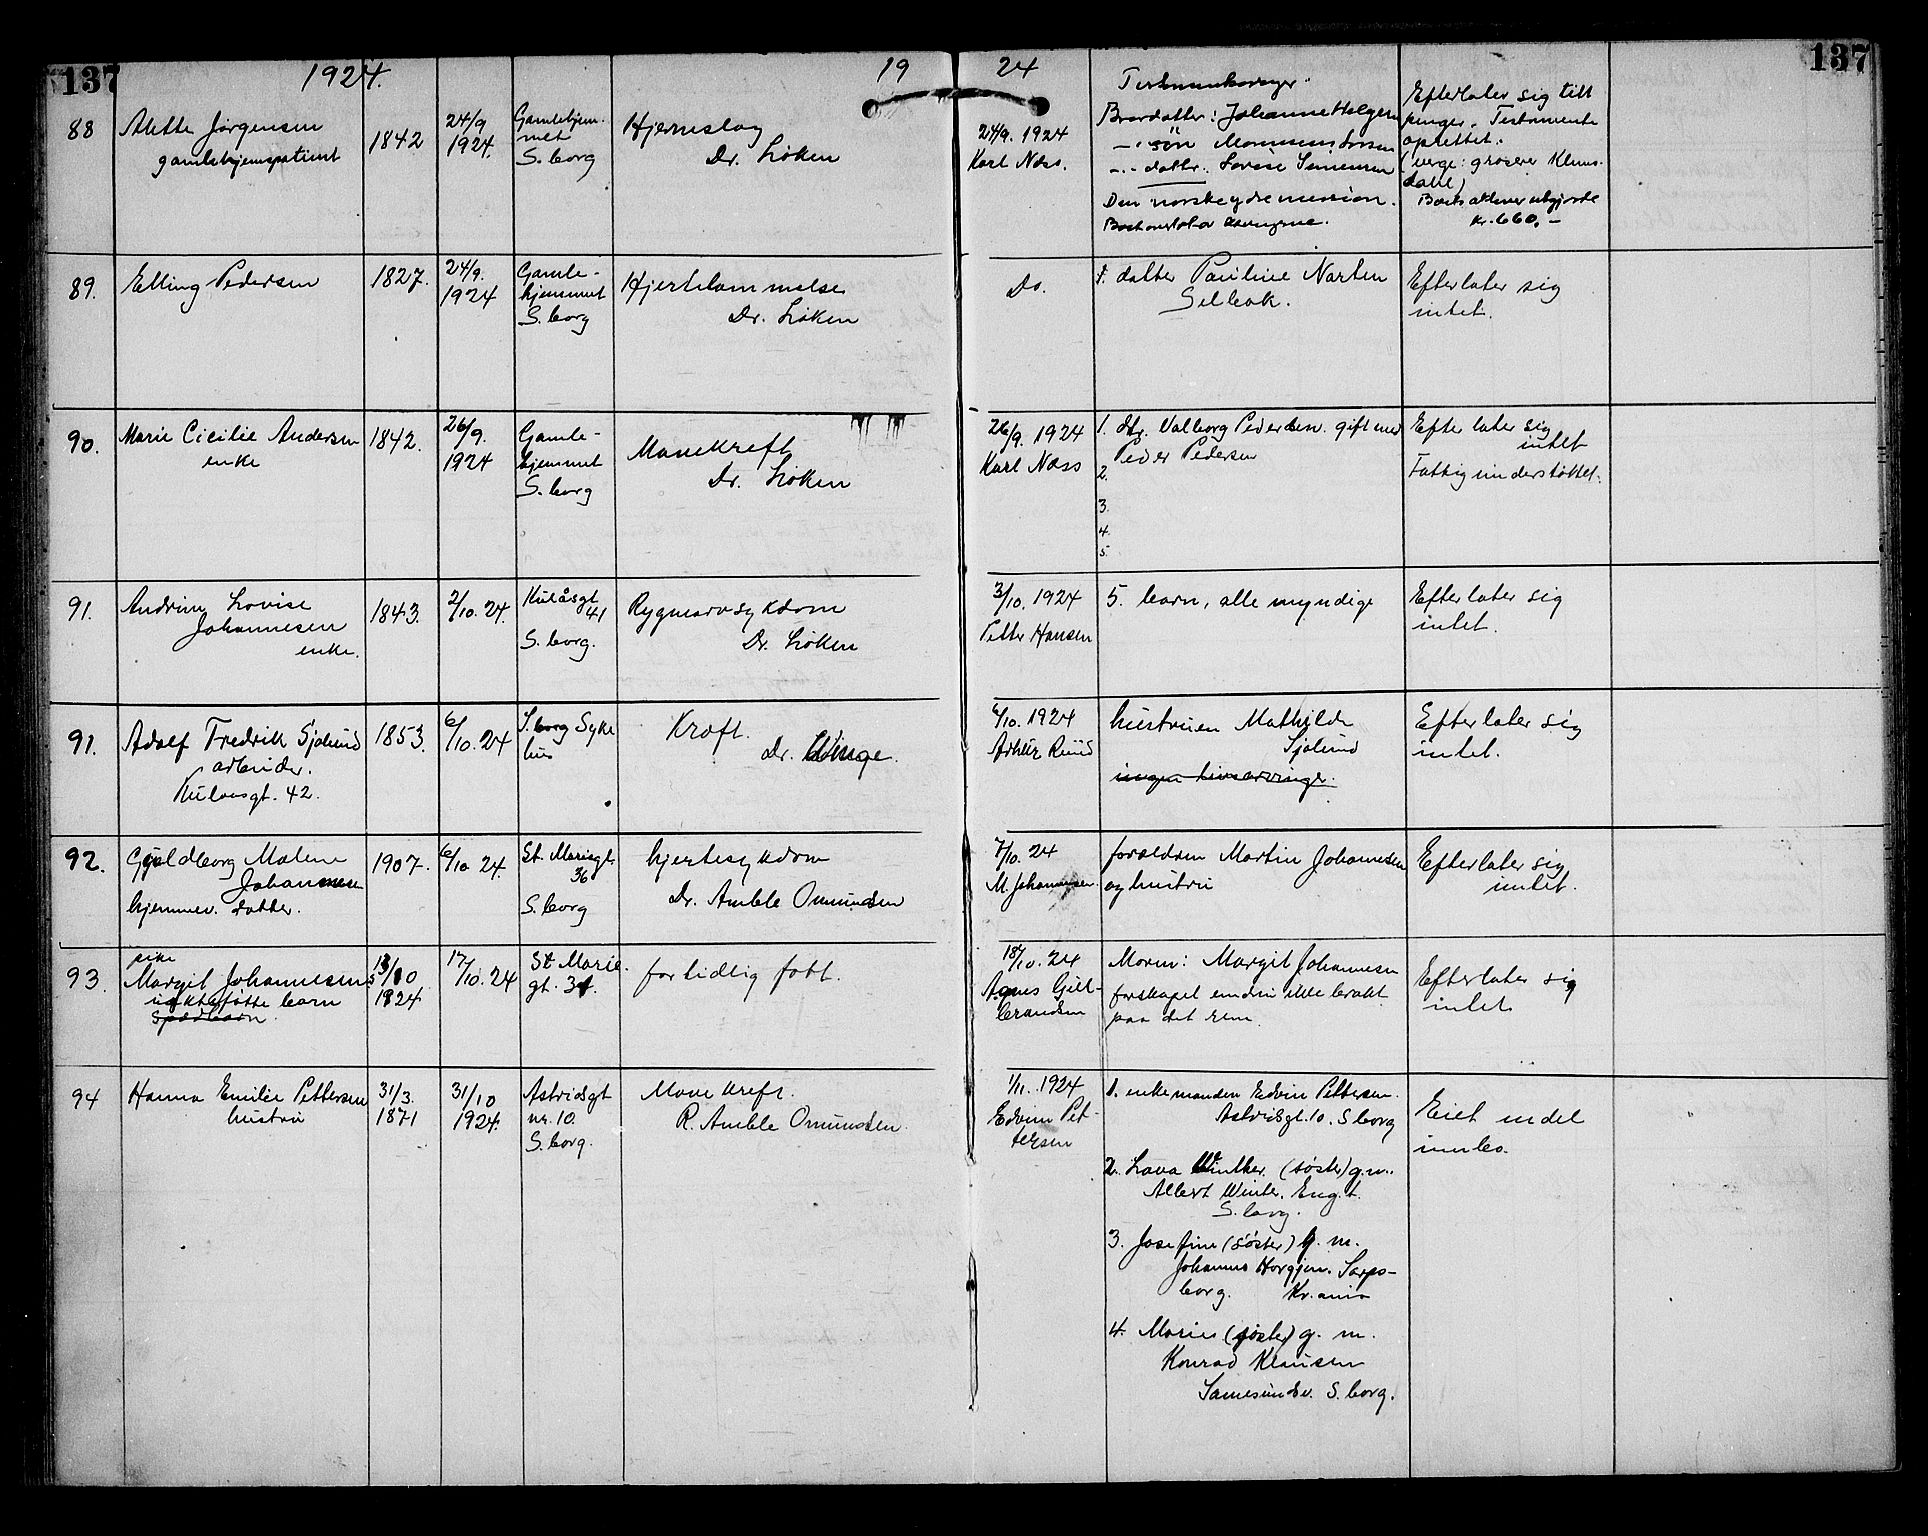 137
1924.
19
24
137
88
Alette Jørgensen
gamlehjemspatient
1842
24/9
1924.
Gamlehjem-
met
S.borg
Hjerneslag
Dr. Løken
24/9. 1924
Karl Næss.
Testamentsarvinger
Brordatter: Johanne Holgersen
søn
datter. Lovise Simensen
Den norske ydre mission.
Efterlater sig litt
penger. Testamente
oprettet.
(verge: groserer Klems-
dahl)
utgjorde
kr. 660,-
89.
Elling Pedersen
1827.
24/9.
1924
Gamle-
hjemmet
S.borg
Hjertelammelse
Dr. Løken
Do.
1. datter Pauline Narten
Selbak.
Efterlater sig
intet.
90.
Marie Cicilie Andersen
enke
1842.
26/9.
1924
Gamle-
hjemmet
S.borg
Mavekreft
Dr. Løken
26/9. 1924
Karl Næss
1. dtr. Valborg Pedersen gift med
Peder Pedersen
2.
3.
4.
5.
Efterlater sig
intet
Fattigunderstøttet.
91.
Andrine Lovise
Johannesen
enke.
1843.
2/10.24.
Kulåsgt
41
S.borg.
Rygmarvsykdom
Dr. Løken
3/10. 1924
Petter Hansen
5. barn, alle myndige
Efterlater sig
intet.
91.
Adolf Fredrik Sjølund
arbeider.
Kulaasgt. 42.
1853.
6/10.24
S.borg Syke
hus
Kræft.
Dr.
6/10. 1924
Arthur Ruud
hustruen Mathilde
Sjølund
ingen livsarvinger.
Efterlater sig
intet.
92.
Gyldborg Malene
Johannesen
hjemmev. datter.
1907.
6/10 24.
St. Mariegt.
36
S.borg
hjertesykdom
Dr. Amble Omundsen
7/10. 24
M. Johannesen.
forældren Martin Johannesen
og hustru
Efterlater sig
intet.
93.
pike
Margit Johannesens
uektefødte barn
spædbarn
13/10
1924
17/10.24
St Marie
gt. 34.
for tidlig født.
18/10.24
Agnes Gul-
brandsen
Moren: Margit Johannesen
farskapet endnu ikke brakt
paa det rene.
Efterlater sig
intet
94
Hanna Emilie Pettersen
hustru
31/3.
1871
31/10
1924.
Astridsgt
nr. 10.
S.borg.
Mave kreft.
R. Amble Omundsen.
1/11. 1924
Edvin Pet-
tersen
1. enkemanden Edvin Pettersen.
Astridsgt. 10. S borg
2. Lava Winther. (søster) g.m.
Albert Winter. Eng.t.
S.borg.
3. Josefine (søster) g. m.
Johannes Sarps-
borg. Kr.ania
4. Marie (søster) g. m.
Konrad Klausen
Sannesundsv. S.borg.
Eiet endel
innbo.